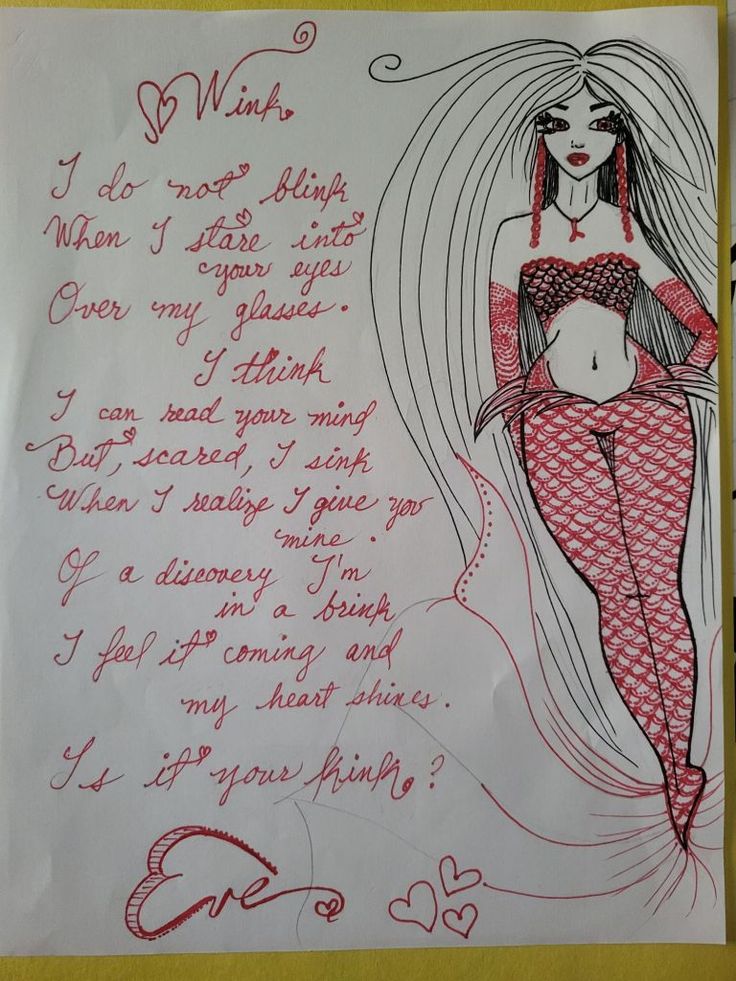 Wink
I do not blink
When I stare into
your eyes
Over my glasses.
I think
I can read your mind
But, scared, I sink
When I realize I give you
mine.
Of a discovery I'm
in a brink
I feel it coming and
my heart shines.
Is it your kink?
Eve